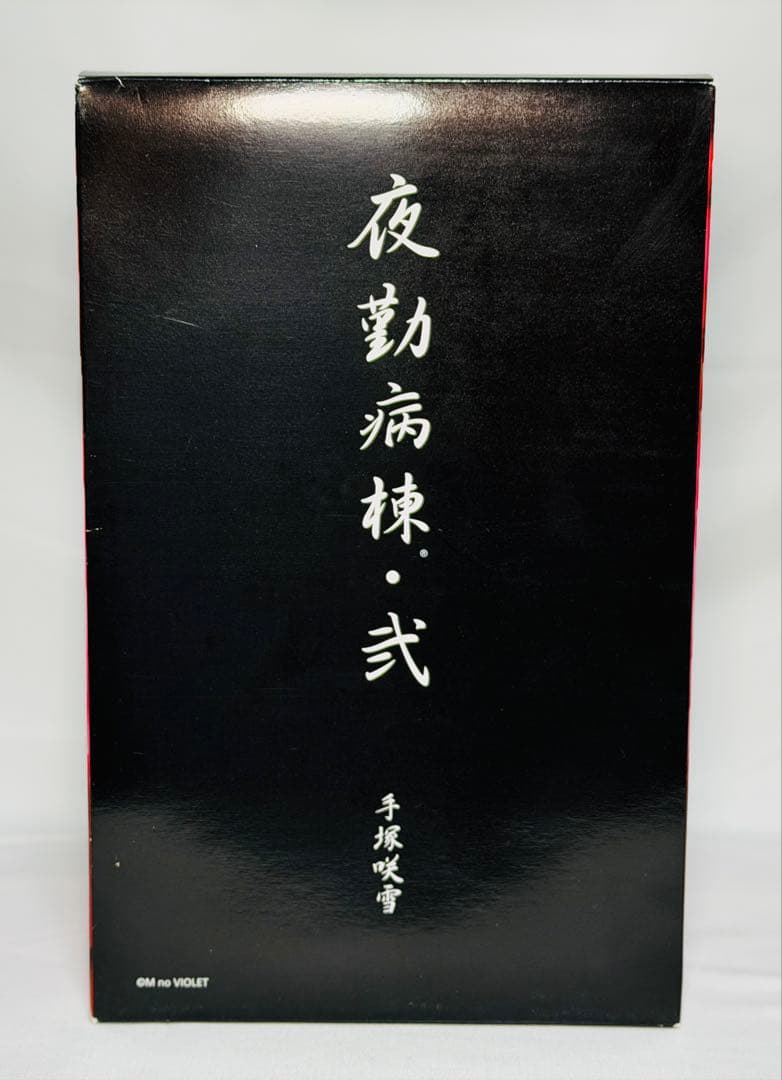 夜勤病棟®・弐
手塚咲雪
©M no VIOLET